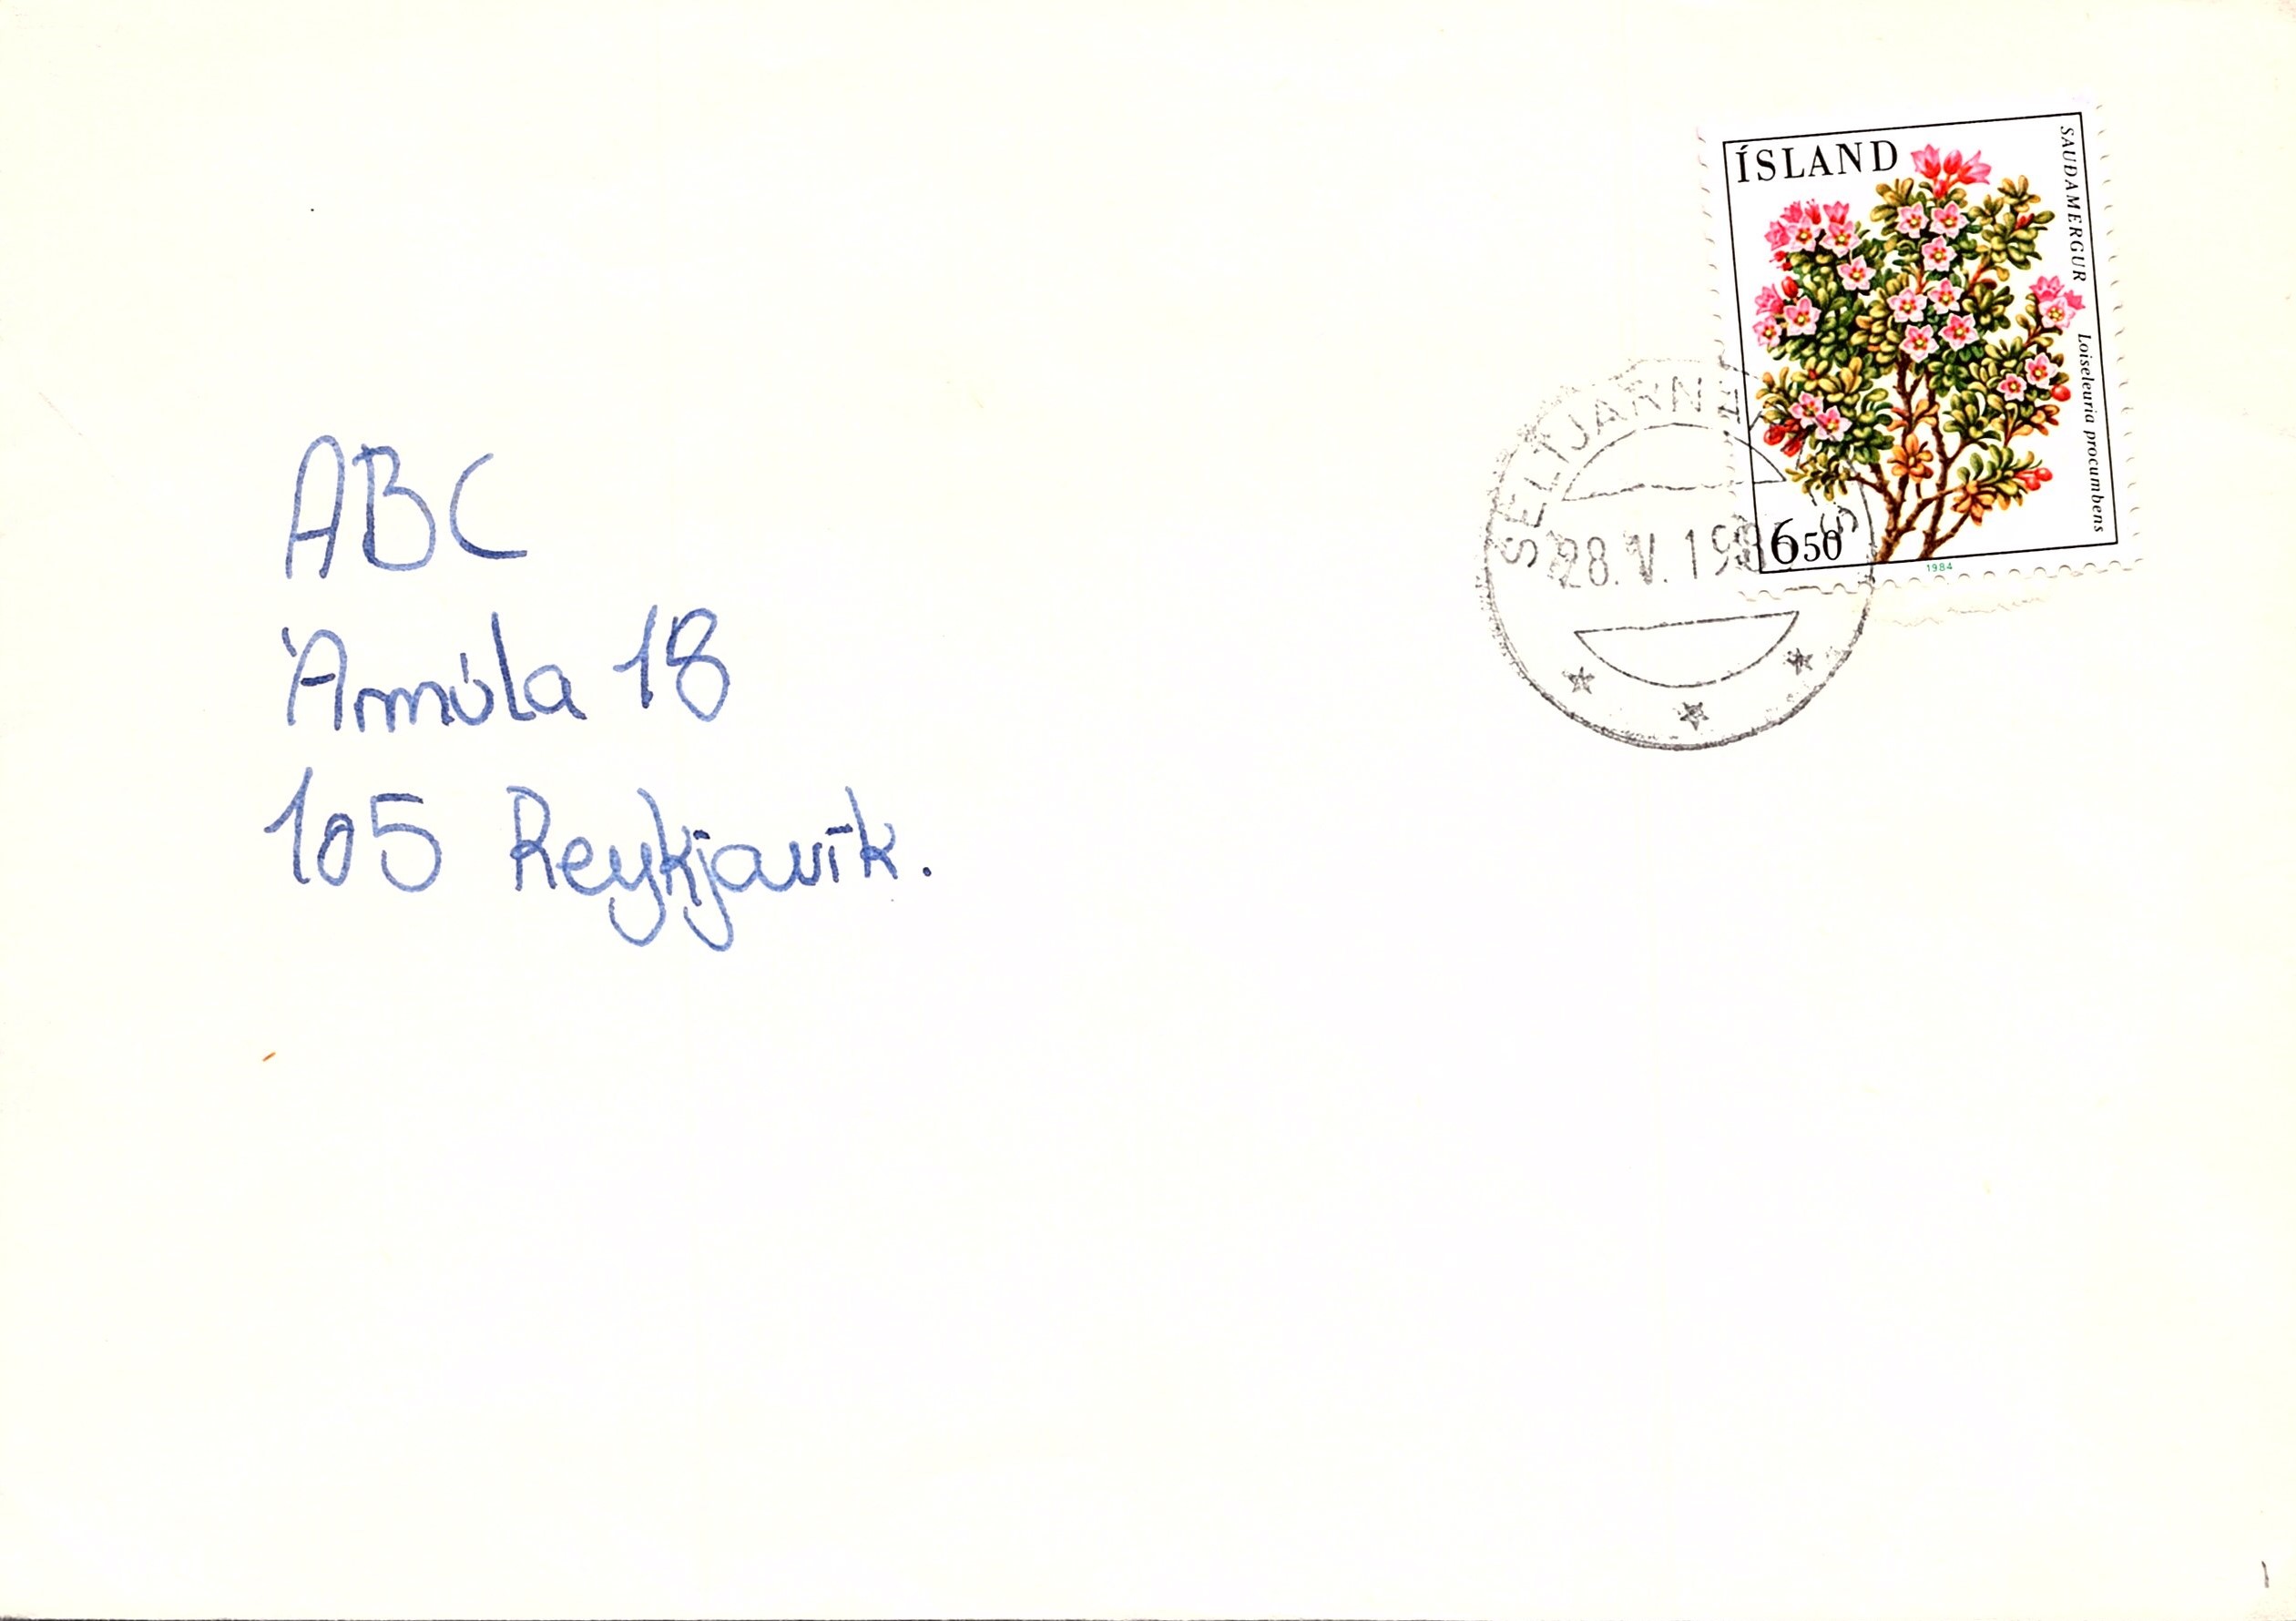 ÍSLAND
SAUÐAMERGUR Loiseleuria procumbens
650
1984
28. V.
ABC
Ármúla 18
105 Reykjavík.